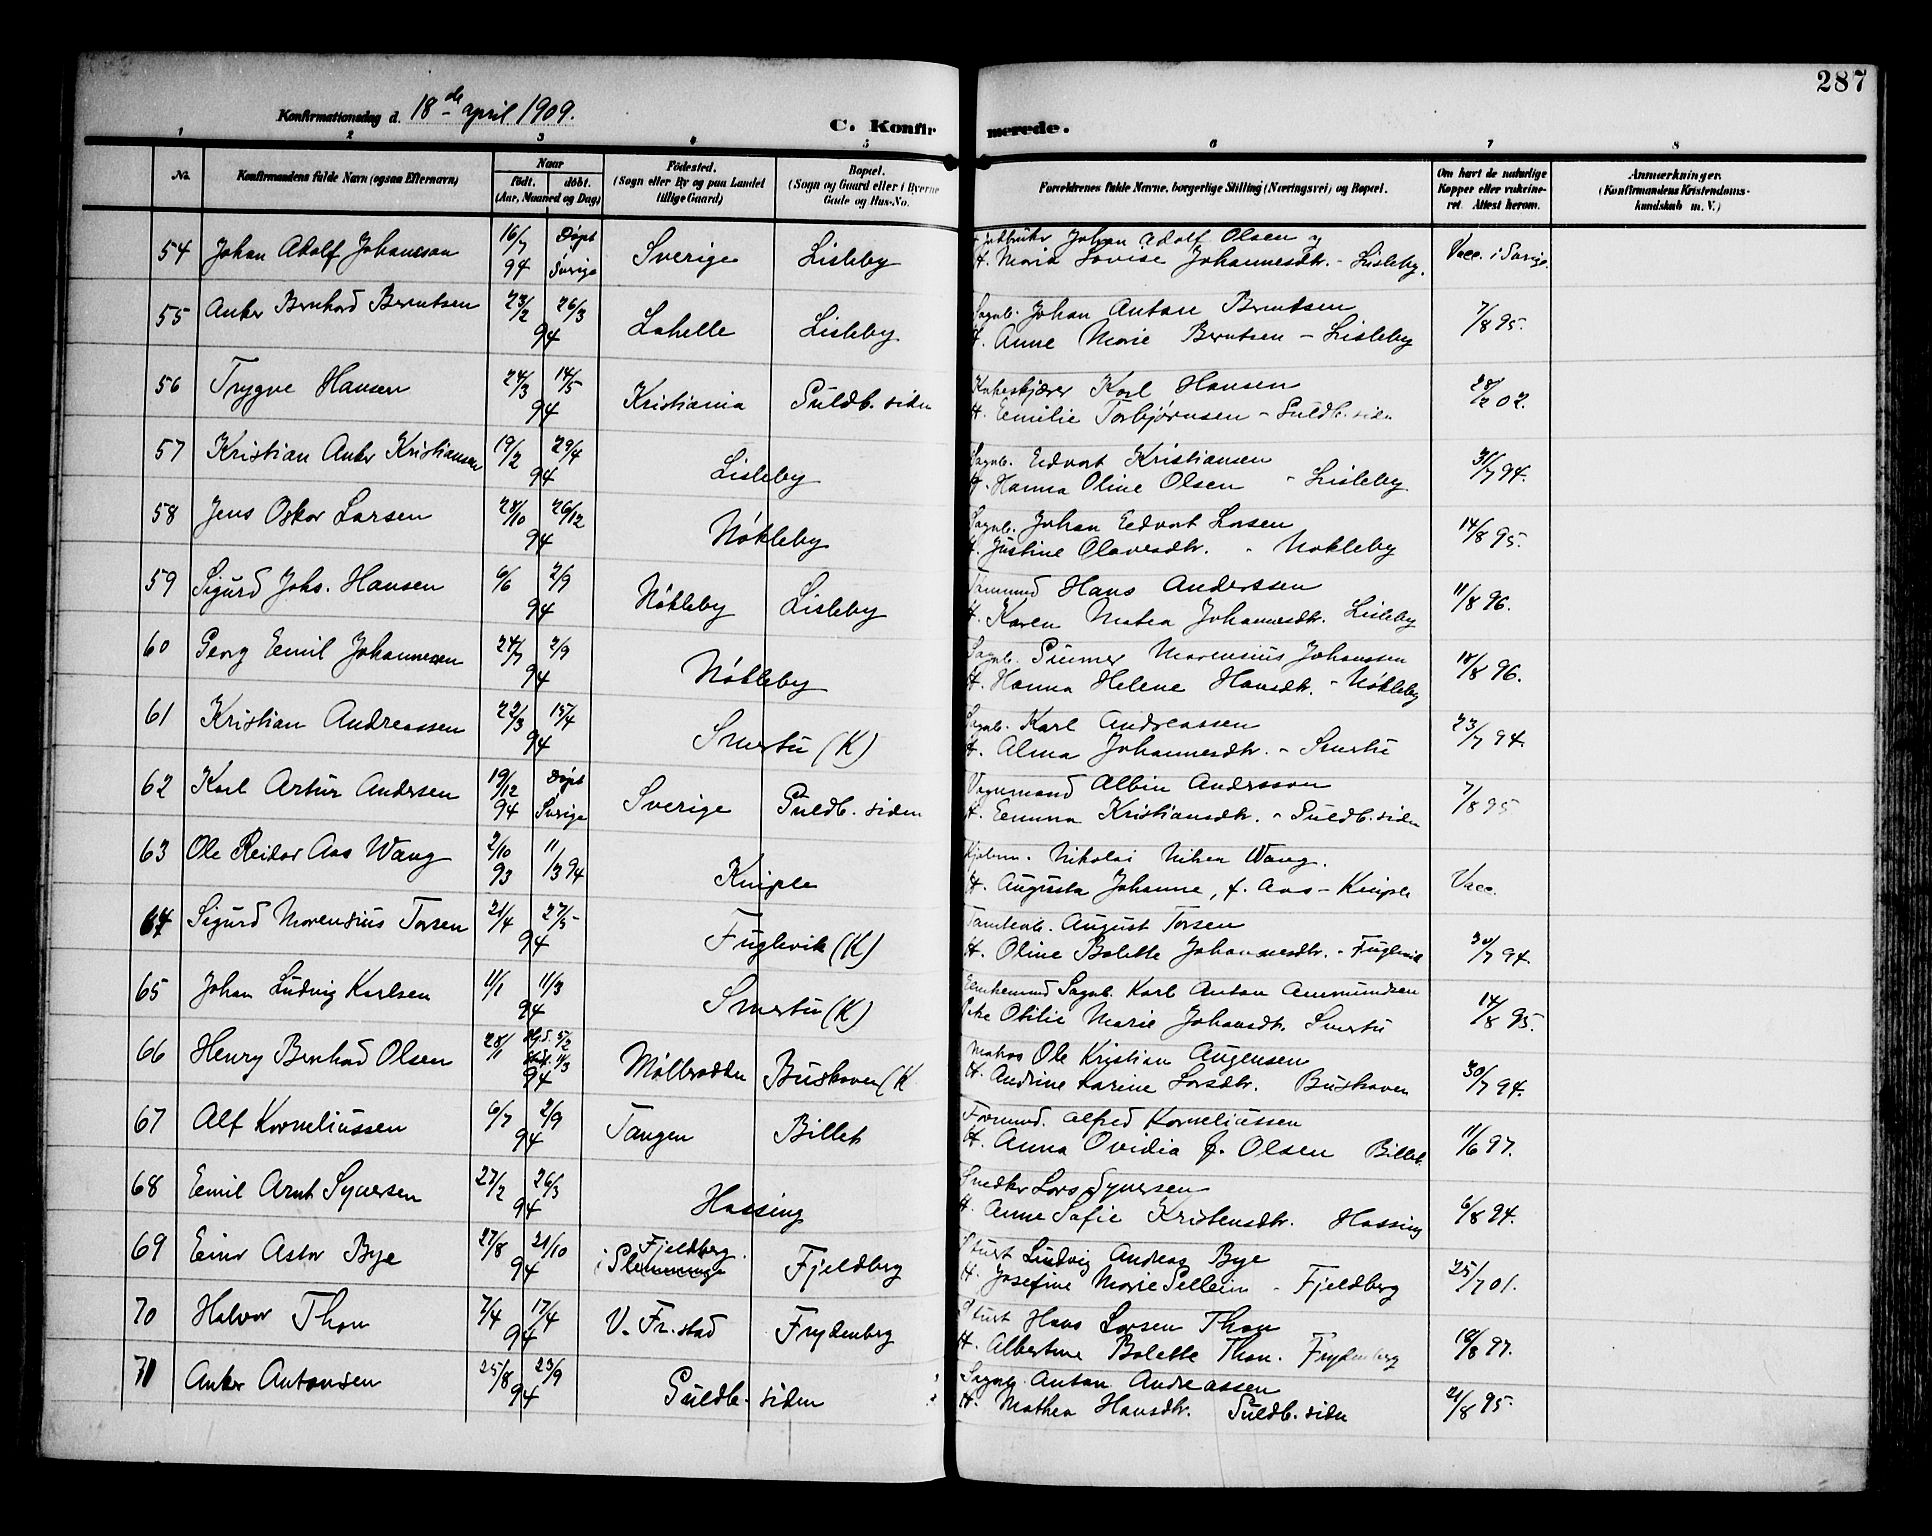 287
Konfirmationsdag d. 18de april 1909.
C. Konfirmerede.
1 2 3 4 5 6 7 8
No.
Konfirmandens fulde Navn (ogsaa Efternavn)
Naar
født. døbt.
(Aar, Maaned og Dag)
Fødested.
(Sogn eller By og paa Landet
tillige Gaard)
Bopæl.
(Sogn og Gaard eller i Byerne
Gade og Hus-No.
Forældrenes fulde Navne, borgerlige Stilling (Næringsvei) og Bopæl.
Om havt de naturlige
Kopper eller vakcine-
ret. Attest herom.
Anmærkninger.
(Konfirmandens Kristendoms-
kundskab m. V.)
54 Johan Adolf Johanesson 16/7 94 Døpt Sverige Sverige Lisleby
Johan Adolf Olsen og
H. Maria Lovise Johannesdtr. - Lisleby. Vacc. i Sverige
55 Anker Bernhard Berntsen 23/2 26/3 94 Lahelle Lisleby
Sagb. Johan Anton Berntsen
H. Anne Marie Berntsen - Lisleby 7/8 95.
56 Trygve Hansen 24/3 14/5 94 Kristiania Guldb. siden
Karl Hansen
H. Eemilie Torbjørnsen - Guldb. siden 28/2 02.
57 Kristian Anker Kristiansen 19/2 29/4 94 Lisleby
Sagb. Edvart Kristiansen
H. Hanna Oline Olsen - Lisleby 31/7 94.
58 Jens Oskar Larsen 28/10 26/12 94 Nøkleby
Sagb. Johan Edvart Larsen
H. Justine Olavesdtr. - Nøkleby 14/8 95.
59 Sigurd Johs. Hansen 6/6 2/9 94 Nøkleby Lisleby
Tømmerm. Hans Anderssen
H. Karen Matea Johannesdtr. Lisleby 11/8 96.
60 Georg Eemil Johannesen 24/7 2/9 94 Nøkleby
Sagb. Marensius Johanssen
H. Hanna Helene Hansdtr. - Nøkleby 18/8 96.
61 Kristian Andreassen 22/3 15/4 94 Smertu (K)
Sagb. Karl Andreassen
H. Alma Johannesdtr. - Smertu 23/7 94.
62 Karl Artur Andersen 19/12 94 Døpt Sverige Sverige Guldb. siden
Vognmand Albin Andersson
H. Eemma Kristiansdtr. - Guldb. siden 7/8 95
63 Ole Reidar Aas Wang 2/10 93 11/3 94 Kniple
Kjøbm. Nikolai Wang.
H. Augusta Johanne, f. Aas - Kniple Vacc.
64 Sigurd Marensius Torsen 21/4 27/5 94 Fuglevik (K)
Tomtearb. August Torsen
H. Oline Bolette Johannesdtr. - Fuglevik 30/7 94.
65 Johan Ludvig Karlsen 11/1 11/3 94 Smertu (K)
Enkemand Sagb. Karl Anton Ammundsen
Otilie Marie Johansdtr Smertu 14/8 95.
66 Henry Bernhad Olsen 28/1 Hjd. 5/2 11/3 94 Møllerodden Buskoven (K
Matros Ole Kristian Augensen
H. Andrine Karine Larsdtr. Buskoven 30/7 94.
67 Alf Korneliussen 6/7 2/9 94 Tangen Billet
Formand. Alfred Korneliussen
H. Anna Ovidia f. Olsen Billet. 11/6 97.
68 Eemil Arnt Syversen 27/2 26/3 94 Hassing
Snedker Lars Syversen
H. Anne Sofie Kristensdtr. Hassing 6/8 94.
69 Einar Astor Bye 27/8 21/10 94 Fjeldberg. i Glemminge Fjeldberg
Stuert Ludvig Andreas Bye
H. Josefine Marie Pellein - Fjeldberg 25/7 01.
70 Halvor Thon 7/4 17/4 94 V. Fr. stad Frydenberg
Stuert Hans Larsen Thon
H. Albertine Bolette Thon. Frydenberg 19/8 97.
71 Anker Antonsen 25/8 23/9 94 Guldb. siden
Sagb. Anton Andreassen
H. Mathea Hansdtr. Guldb. siden 21/8 95.